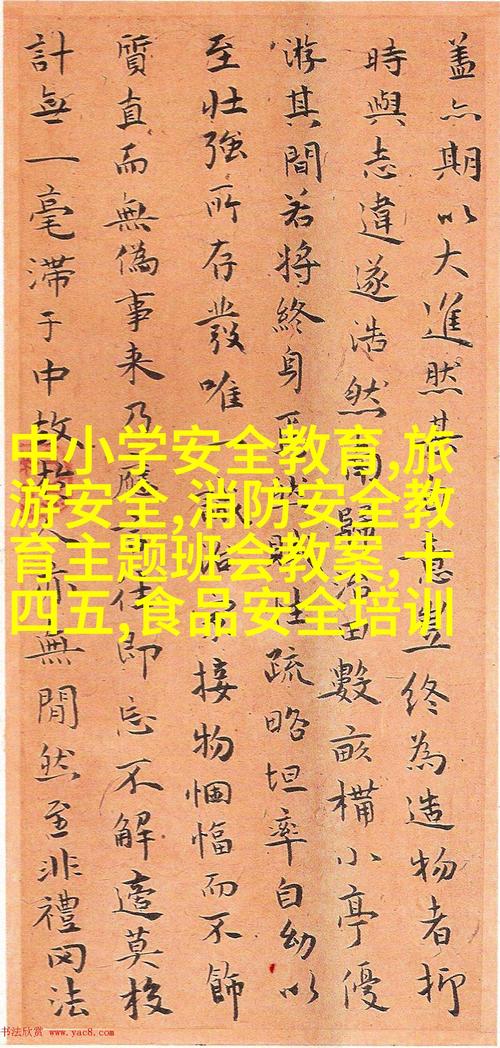 盖亦期以大進然其意豈終為造物者抑
時與志違遂浩然歸田數畝構小亭優
游其間若將終身性疏略坦率自幼以
至壯強所存發唯一接物悃愊而不飾
質直而無偽事来乃應即忘不解莫
計無一毫滯于中故人亦無間然至非禮罔法
中小学安全教育,旅
游安全,消防安全教
育主题班会教案,十
四五,食品安全培训
书法欣赏 www.yac8.com